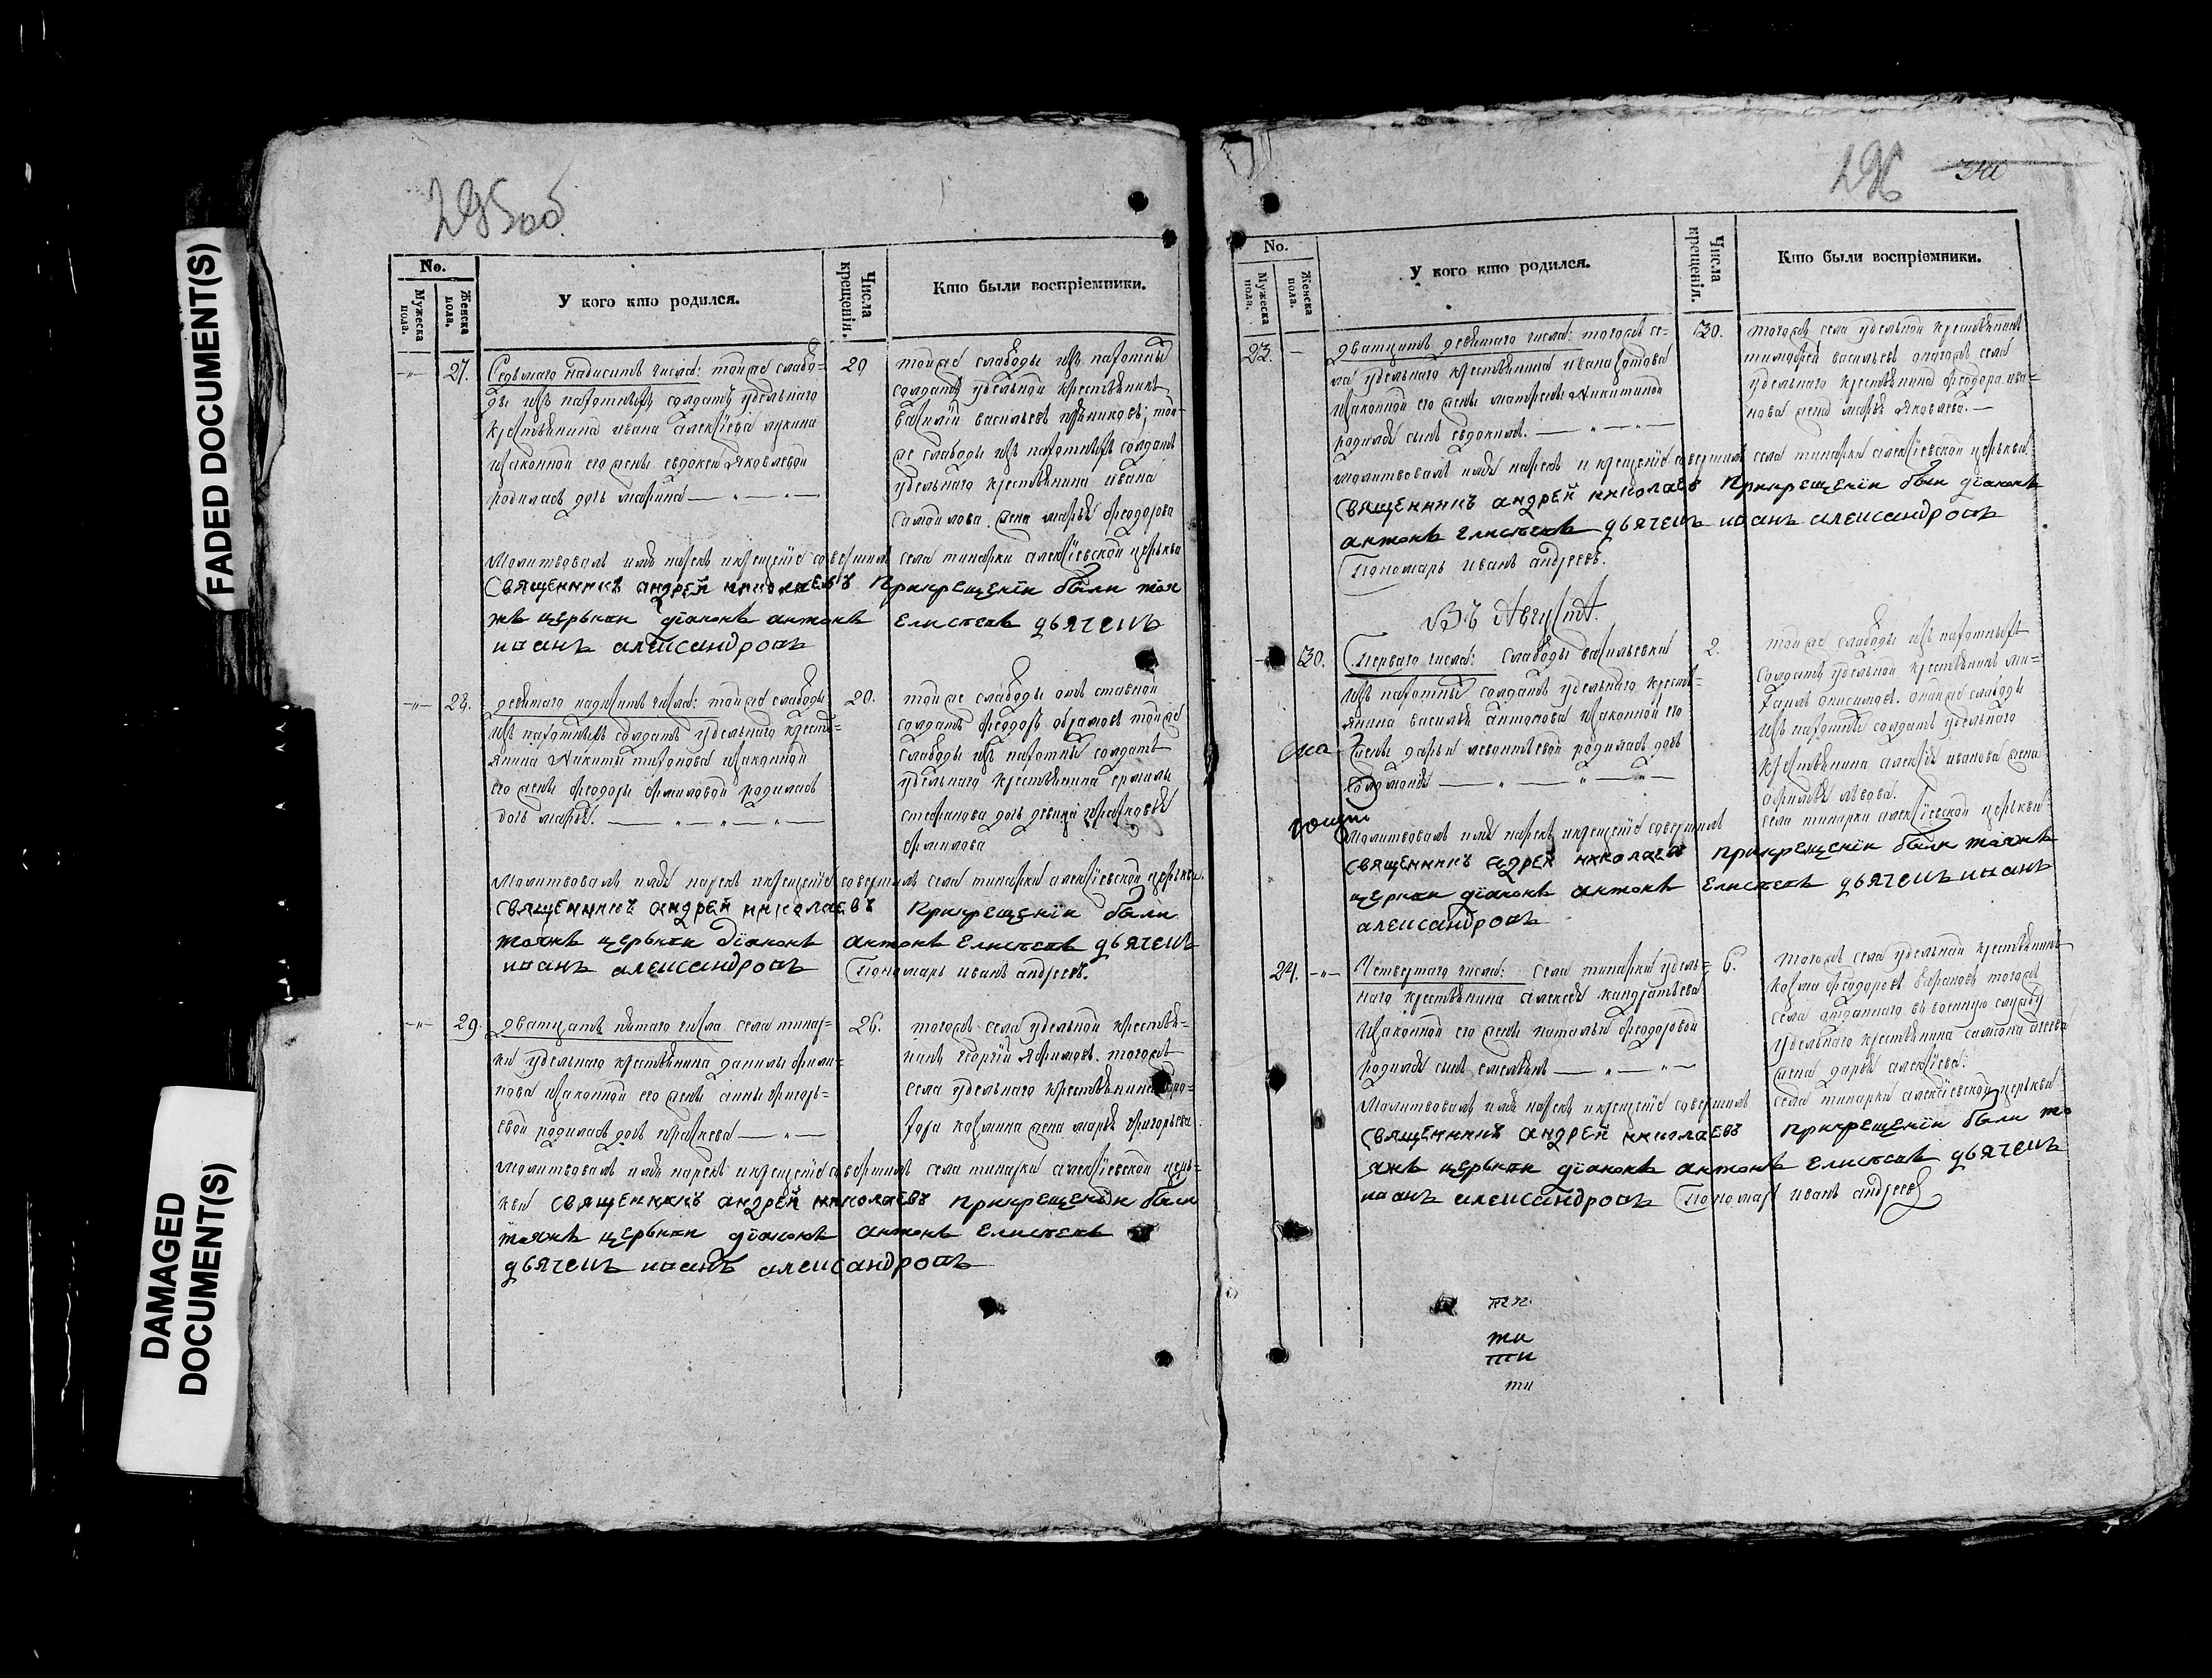 FADED DOCUMENT(S)
DAMAGED
DOCUMENT(S)
295об
No.
Мужеска пола.
Женска пола.
У кого кто родился.
Числа крещенія.
Кто были воспріемники.
27.
Седьмаго надесить числа: тойже слабо=
ды изъ пахотныхъ солдатъ удельнаго
крестьянина ивана алексіева лукина
изаконной его жены евдокеи яковлевой
родилась дочь марина
20
тойже слабоды изъ пахотны
солдатъ удельной крестьянинъ
василій васильевъ
же слабоды изъ пахотныхъ солдатъ
удельнаго крестьянина ивана
самойлова жена марья феодорова
Молитвовалъ имя нарекъ икрещеніе совершилъ села тинарки алексіевской церькви
Священникъ андрей николаевъ Прикрещеніи были тоя
жъ церькви діаконъ антонъ Елисеевъ дьячекъ
иоанъ александровъ
28.
девятаго надесить числа: тойже слабоды
изъ пахотныхъ солдатъ удельнаго кресть=
янина никиты изаконной
его жены феодоры родилась
дочь марья.
20.
тойже слабоды отъ ставной
солдатъ феодоръ тойже
слабоды изъ пахотны солдатъ
удельнаго крестьянина
степанова дочь девица
Молитвовалъ имя нарекъ икрещеніе совершилъ села тинарки алексіевской церькви
священникъ андрей николаевъ Прикрещеніи были
тояжъ церькви діаконъ антонъ Елисеевъ дьячекъ
иоанъ александровъ Пономарь иванъ андреевъ.
29.
дватцать пятаго числа села тинар=
ки удельнаго крестьянина данилы фили=
пова изаконной его жены анны григорь=
евой родилась дочь
26.
тогожъ села удельной крестья=
нинъ георгій тогожъ
села удельнаго крестьянина
козмина жена марья григорьева
Молитвовалъ имя нарекъ икрещеніе совершилъ села тинарки алексіевской церь=
кви священникъ андрей николаевъ прикрещеніи были
тояжъ церькви діаконъ антонъ Елисеевъ
дьячекъ иоанъ александровъ
296
340
No.
Мужеска пола.
Женска пола.
У кого кто родился.
Числа крещенія.
Кто были воспріемники.
23.
дватцать девятаго числа: тогожъ се=
ла удельнаго крестьянина ивана
изаконной его жены матрены никитиной
родился сынъ евдокимъ.
30.
тогожъ села удельной крестьянинъ
тимофей васильевъ села
удельнаго крестьянина феодора ива=
нова жена марья яковлева.
Молитвовалъ имя нарекъ и крещеніе совершилъ села тинарки алексіевской церькви
Священникъ андрей николаевъ Прикрещеніи были діаконъ
антонъ Елисеевъ дьячекъ иоанъ александровъ
Пономарь иванъ андреевъ.
Въ Августѣ.
30.
Перваго числа: слабоды васильевки
изъ пахотны солдатъ удельнаго кресть=
янина василья антонова изаконной его
жены дарьи леонтьевой родилась дочь
соломонья
2.
тойже слабоды изъ пахотныхъ
солдатъ удельной крестьянинъ ми=
хаилъ слабоды
изъ пахотны солдатъ удельнаго
крестьянина алексія иванова жена
львова.
Молитвовалъ имя нарекъ икрещеніе совершилъ села тинарки алексіевской церькви
священникъ андрей николаевъ прикрещеніи были тояжъ
церкви діаконъ антонъ Елисеевъ дьячекъ иоанъ
александровъ
24.
Четвертаго числа: села тинарки удель=
наго крестьянина алексея кондратьева
изаконной его жены натальи феодоровой
родился сынъ емельянъ
6.
тогожъ села удельной крестьянинъ
козма феодоровъ тогожъ
села отданнаго въ военную службу
удельнаго крестьянина
жена дарья алексіева:
Молитвовалъ имя нарекъ икрещеніе совершилъ села тинарки алексіевской церькви
священникъ андрей николаевъ прикрещеніи были то
яжъ церькви діаконъ антонъ Елисеевъ дьячекъ
иоанъ александровъ Пономарь иванъ андреевъ